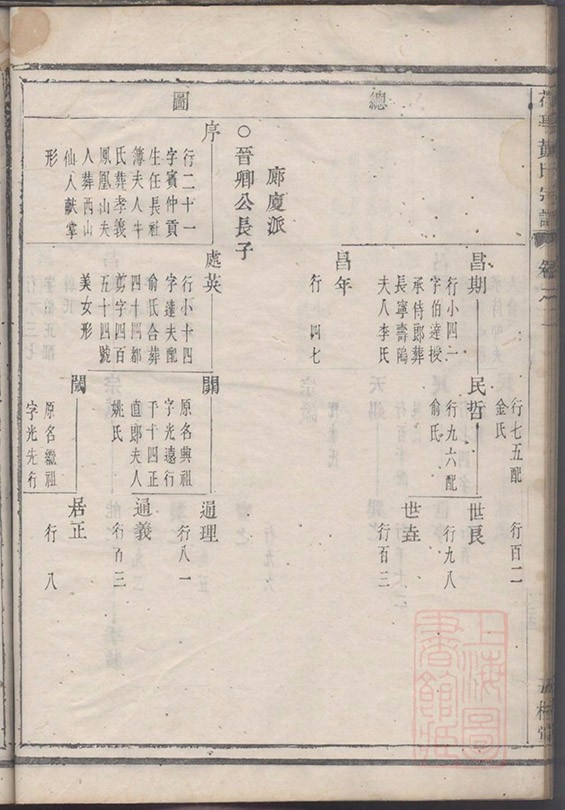 總圖
行七五配
金氏
行百二
昌期
行小四一
字伯達授
承侍郎葬
長寧壽隖
夫人李氏
民哲
行九六配
俞氏
世良
行九八
世垚
行百三
昌年
行四七
廊廈派
○晉卿公長子
序
行二十一
字賓仲貢
生任長社
簿夫人牛
氏葬孝義
鳳凰山夫
人葬西山
仙人獻掌
形
處英
行小十四
字達夫配
俞氏合葬
四十四都
剪字四百
五十四號
美女形
闢
原名興祖
字光遠行
千十四正
直郎夫人
姚氏
通理
行八一
通義
行百三
閾
原名繼祖
字光先行
居正
行八
上海圖
書館藏